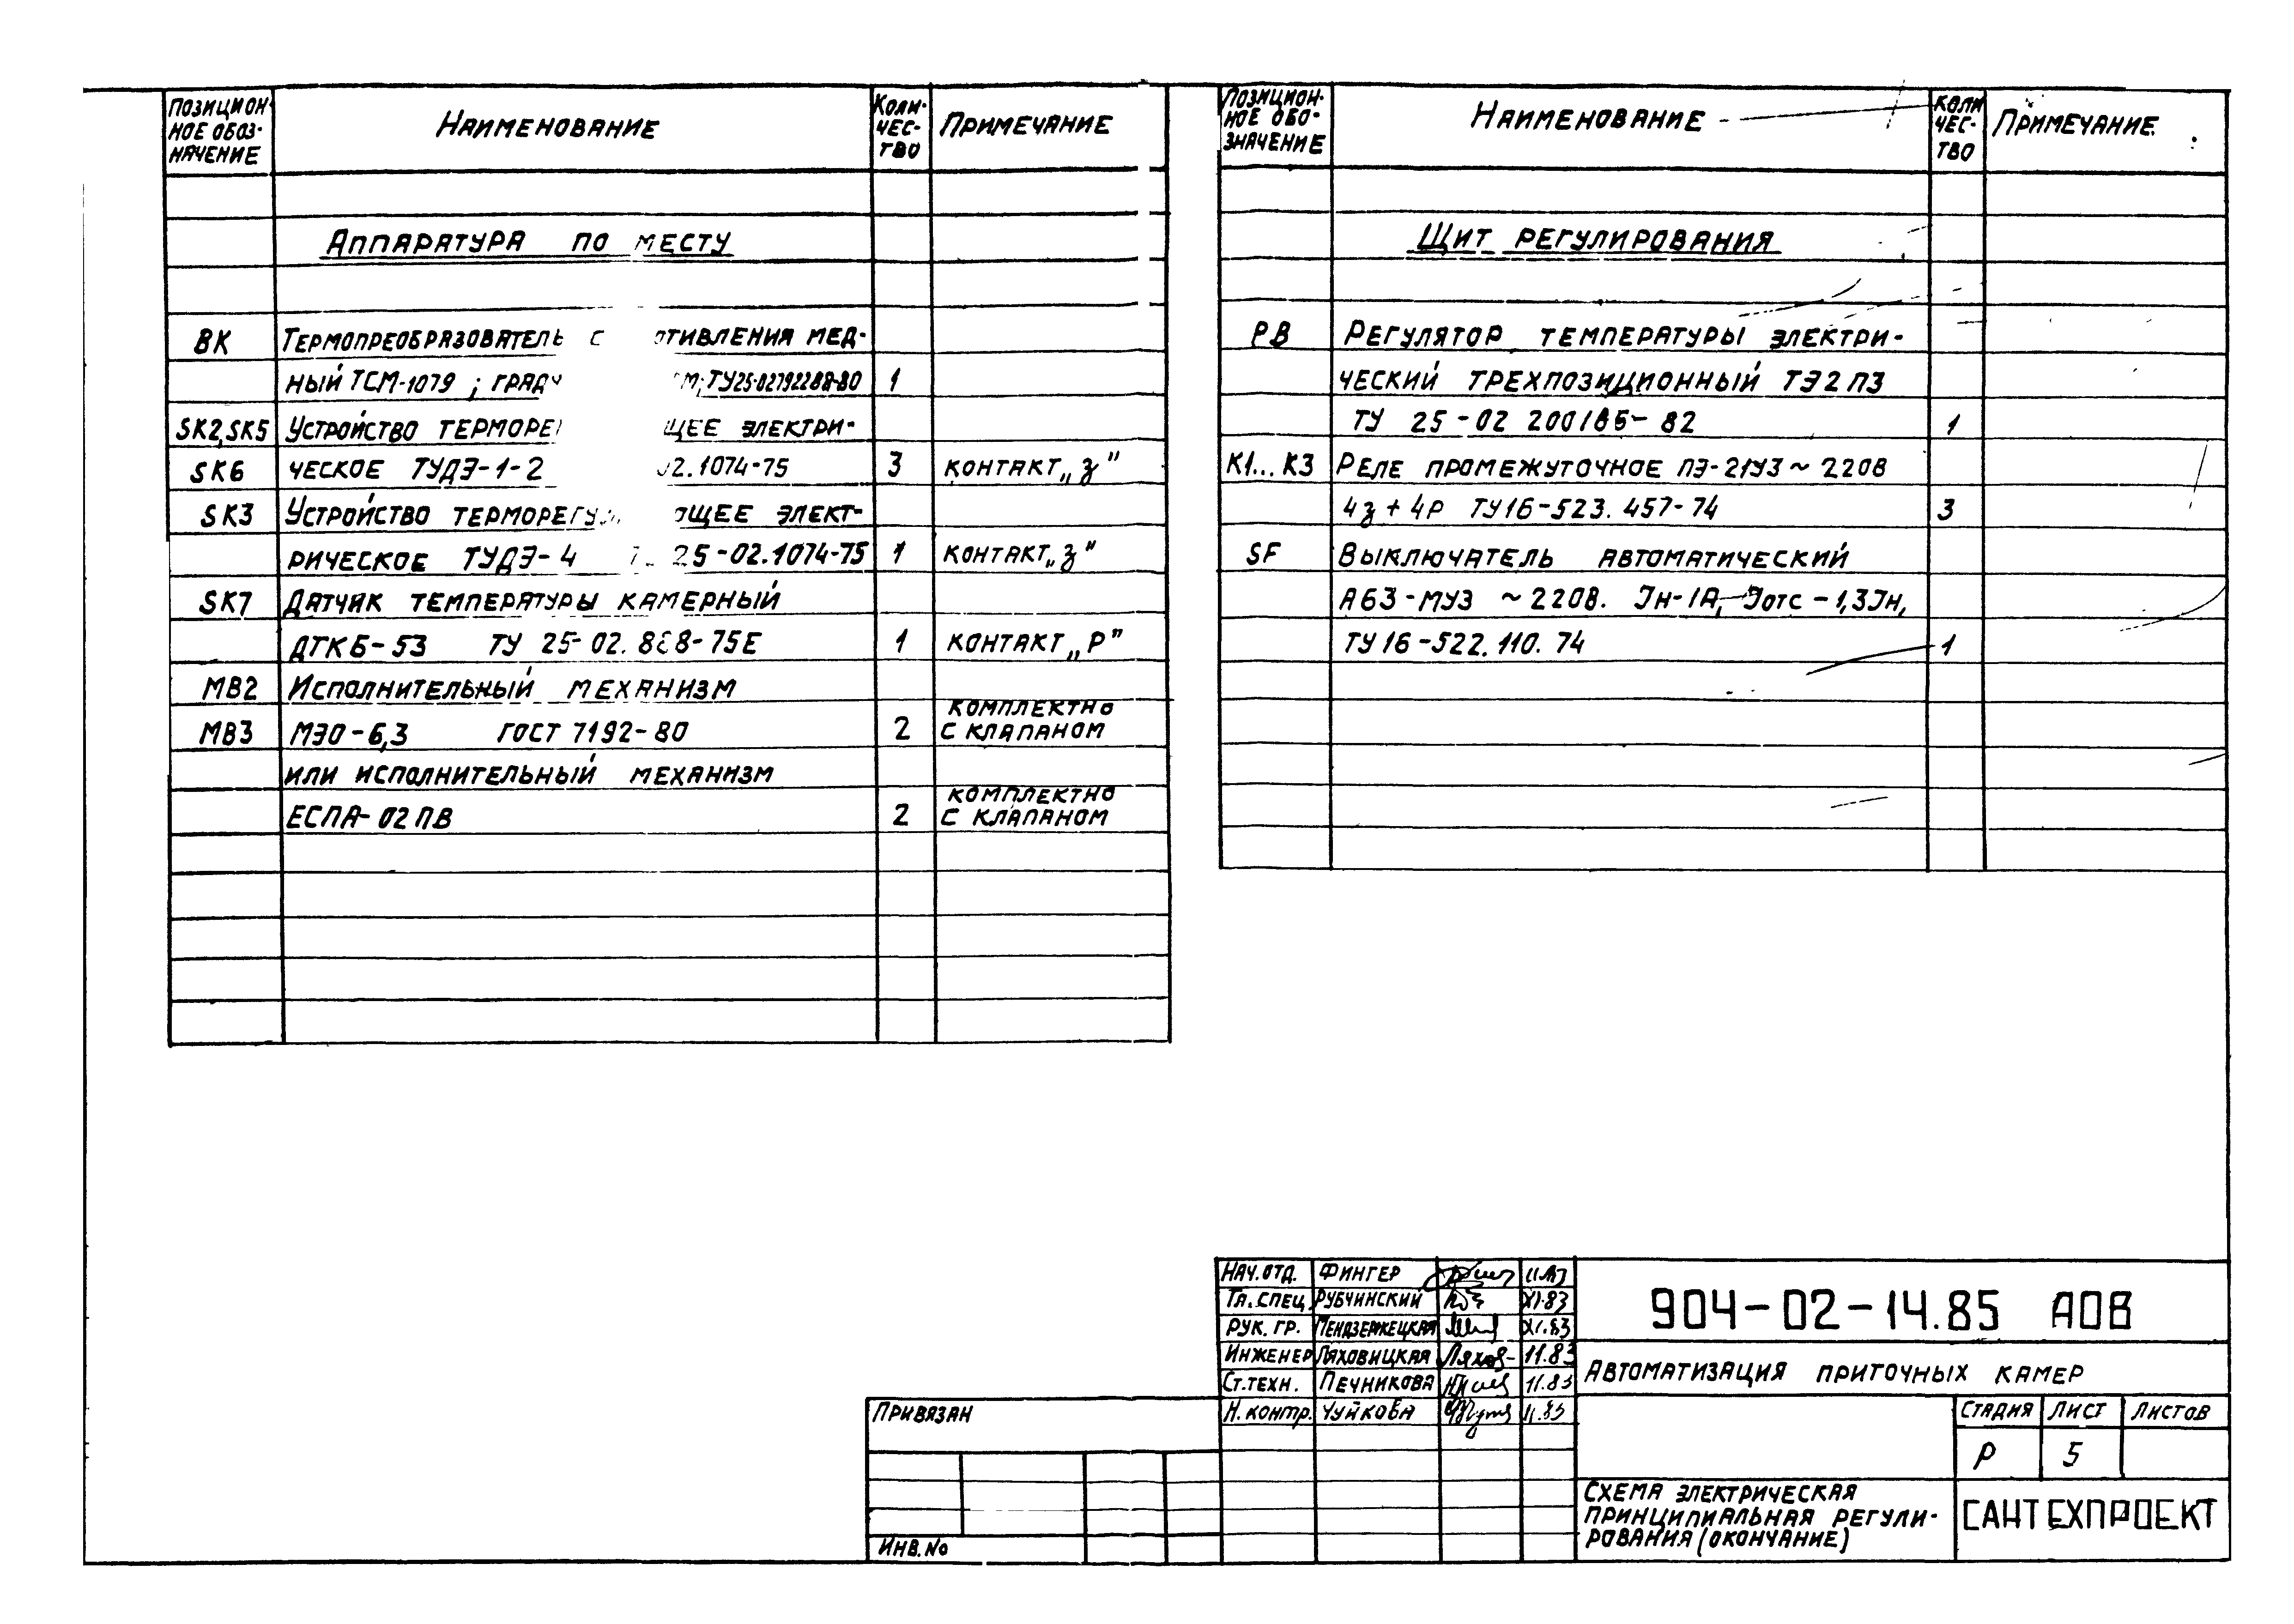 ПОЗИЦИОН-
НОЕ ОБОЗ-
НАЧЕНИЕ
НАИМЕНОВАНИЕ
КОЛИ-
ЧЕС-
ТВО
ПРИМЕЧАНИЕ
АППАРАТУРА ПО МЕСТУ
ВК ТЕРМОПРЕОБРАЗОВАТЕЛЬ С ОТИВЛЕНИЯ МЕД-
НЫЙ ТСМ-1079; ГРАДУ М; ТУ25-02792288-80 1
SK2,SK5 УСТРОЙСТВО ТЕРМОРЕ ЩЕЕ ЭЛЕКТРИ-
SK6 ЧЕСКОЕ ТУДЭ-1-2 02.1074-75 3 КОНТАКТ „З"
SK3 УСТРОЙСТВО ТЕРМОРЕГУ ЮЩЕЕ ЭЛЕКТ-
РИЧЕСКОЕ ТУДЭ-4 25-02.1074-75 1 КОНТАКТ „З"
SK7 ДАТЧИК ТЕМПЕРАТУРЫ КАМЕРНЫЙ
ДТКБ-53 ТУ 25-02.888-75Е 1 КОНТАКТ „Р"
МВ2 ИСПОЛНИТЕЛЬНЫЙ МЕХАНИЗМ
МВ3 МЭО-6,3 ГОСТ 7192-80 2 КОМПЛЕКТНО
С КЛАПАНОМ
ИЛИ ИСПОЛНИТЕЛЬНЫЙ МЕХАНИЗМ
ЕСПА-02ПВ 2 КОМПЛЕКТНО
С КЛАПАНОМ
ПОЗИЦИОН-
НОЕ ОБО-
ЗНАЧЕНИЕ
НАИМЕНОВАНИЕ
КОЛИ
ЧЕС-
ТВО
ПРИМЕЧАНИЕ
ЩИТ РЕГУЛИРОВАНИЯ
РВ РЕГУЛЯТОР ТЕМПЕРАТУРЫ ЭЛЕКТРИ-
ЧЕСКИЙ ТРЕХПОЗИЦИОННЫЙ ТЭ2П3
ТУ 25-02 200185-82 1
К1...К3 РЕЛЕ ПРОМЕЖУТОЧНОЕ ПЭ-21У3 ~220В
4з+4Р ТУ16-523.457-74 3
SF ВЫКЛЮЧАТЕЛЬ АВТОМАТИЧЕСКИЙ
А63-МУ3 ~220В. Iн-1А, Iотс-1,3Iн,
ТУ16-522.110.74 1
НАЧ.ОТД. ФИНГЕР 11.83
ГЛ.СПЕЦ РУБЧИНСКИЙ XI.83
РУК. ГР. ПЕНДЗЕРЖЕЦКАЯ XI.83
ИНЖЕНЕР ЛЯХОВИЦКАЯ Ляхов- 11.83
СТ.ТЕХН. ПЕЧНИКОВА 11.83
Н.КОНТР. ЧУЙКОВА 11.83
904-02-14.85 АОВ
АВТОМАТИЗАЦИЯ ПРИТОЧНЫХ КАМЕР
СТАДИЯ ЛИСТ ЛИСТОВ
Р 5
СХЕМА ЭЛЕКТРИЧЕСКАЯ
ПРИНЦИПИАЛЬНАЯ РЕГУЛИ-
РОВАНИЯ (ОКОНЧАНИЕ)
САНТЕХПРОЕКТ
ПРИВЯЗАН
ИНВ.№